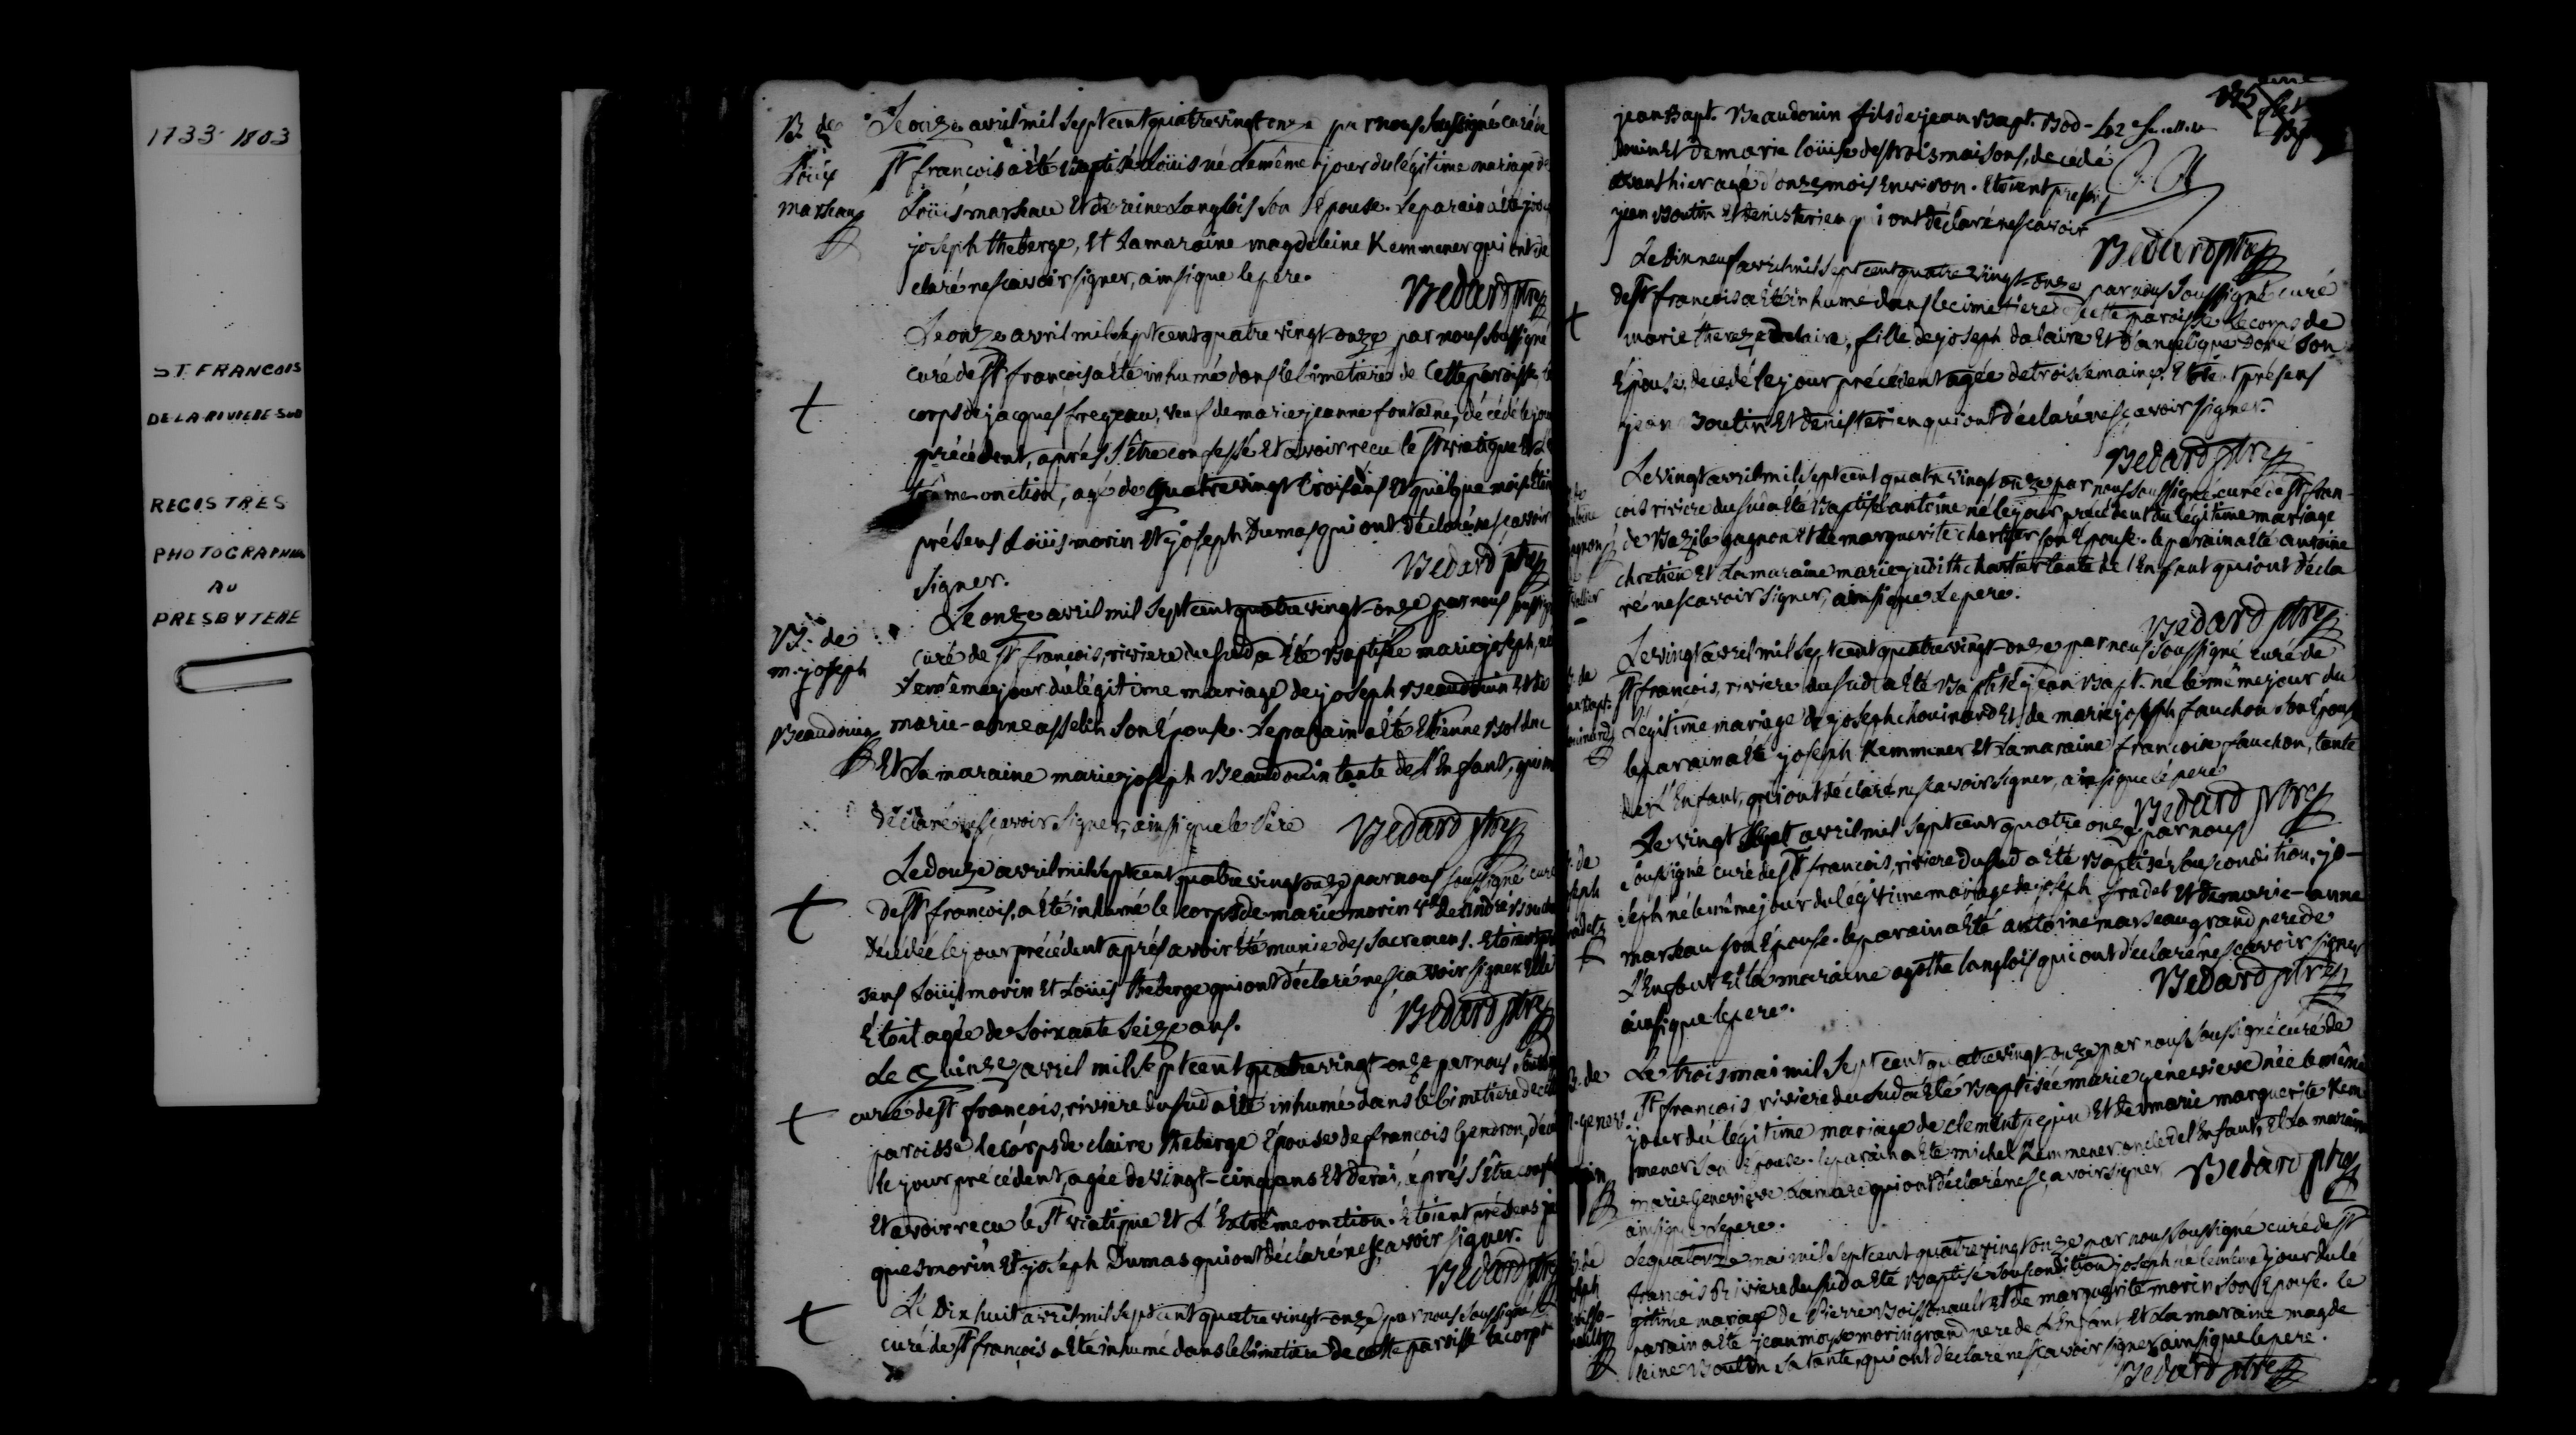 1733-1803
ST FRANCOIS
DE LA RIVIERE SUD
REGISTRES
PHOTOGRAPHIES
AU
PRESBYTERE
B. de
Loüis
marseau
Le onze avril mil sept cent quatre vingt onze par nous soussigné curé de
st françois a été baptisé Loüis né le même jour du légitime mariage de
Loüis marseau et de reine Langlois son Épouse. Le parain a été
joseph theberge, et la maraine magdeleine Kemmener qui ont dé
claré ne scavoir signer, ainsi que le pere.
Bedard ptre
Le onze avril mil sept cent quatre vingt-onze par nous soussigné
curé de st françois a été inhumé dans le cimetiere de Cette paroisse le
corps de jacques fregeau, veuf de marie jeanne fontaine, décédé le jour
précédent, après s'être confessé et avoir recu le st viatique et
onction, agé de quatre vingt trois ans et quelque mois
présens Loüis morin et joseph Dumas qui ont déclaré ne scavoir
signer.
Bedard ptre
B. de
m. joseph
Beaudouin
Le onze avril mil sept cent quatre vingt-onze par nous soussigné
curé de st françois, riviere du sud a été baptisée marie joseph, née
le même jour du légitime mariage de joseph Beaudouin et de
marie-anne asselin son Épouse. Le parain a été Etienne Bolduc
Et la maraine marie joseph Beaudouin tante de l'Enfant, qui
déclaré ne scavoir signer, ainsi que le Père
Bedard ptre
Le douze avril mil sept cent quatre vingt onze par nous soussigné curé
de st françois, a été inhumé le corps de marie morin ve de André
Décédée le jour précédent après avoir été munie des sacremens. Etoient pré
sens Loüis morin et Loüis theberge qui ont déclaré ne scavoir signer Elle
Étoit agée de soixante seize ans.
Bedard ptre
Le quinze avril mil sept cent quatre vingt-onze par nous
curé de st françois, riviere du sud a été inhumé dans le cimetiere de
paroisse le corps de claire theberge Épouse de françois Gendron,
le jour précédent, agée de vingt-cinq ans et demi, après s'être
Et avoir reçu le st viatique et l'Extrême onction. Étoient présens ja
ques morin et joseph Dumas qui ont déclaré ne scavoir signer.
Bedard ptre
Le Dix huit avril mil sept cent quatre vingt-onze par nous soussigné
curé de st françois a été inhumé dans le cimetiere de cette paroisse le corps
jean Bapt. Beaudouin fils de jean Bapt. Bod-
ouin et de marie loüise des trois maisons, decédé
avant hier agé d'onze mois environ. Etoient presens
jean Boutin et denis terien qui ont déclaré ne scavoir
Bedard ptre
Le Dix neuf avril mil sept cent quatre vingt-onze par nous soussigné curé
de st françois a été inhumé dans le cimetiere de cette paroisse le corps de
marie thereze dalaire, fille de joseph dalaire et d'angelique Doré son
Épouse, decedé le jour précédent agée de trois semaines. Etoient présens
jean Boutin Et denis terien qui ont déclaré ne scavoir signer.
Bedard ptre
Le vingt avril mil sept cent quatre vingt onze par nous soussigné curé de st fran-
cois riviere du sud a été Baptisé antoine né le jour précédent du légitime mariage
de Bazile gagnon et de marguerite chartier son Épouse. le parain a été antoine
chretien et la maraine marie judith chartier tante de l'Enfant qui ont décla
ré ne scavoir signer, ainsi que le pere.
Bedard ptre
Le vingt avril mil sept cent quatre vingt-onze par nous soussigné curé de
st françois, riviere du sud a été Baptisé jean Bapt. né le même jour du
Légitime mariage de joseph chouinard et de marie joseph fauchon son Épouse
le parain a été joseph Kemmener et la maraine francoise fauchon, tante
de l'Enfant, qui ont déclaré ne scavoir signer, ainsi que le pere
Bedard ptre
Le vingt sept avril mil sept cent quatre onze par nous
soussigné curé de st françois, riviere du sud a été Baptisé sous condition, jo-
seph né le même jour du légitime mariage de joseph fradet et de marie-anne
marseau son Épouse. le parain a été antoine marseau grand pere de
L'Enfant Et la maraine agathe langlois qui ont déclaré ne scavoir signer
ainsi que le pere.
Bedard ptre
Le trois mai mil sept cent quatre vingt-onze par nous soussigné curé de
st françois riviere du sud a été Baptisée marie genevieve née le même
jour du légitime mariage de clement pepin et de marie marguerite Kem
mener son Épouse. le parain a été michel Kemmener oncle de l'Enfant, Et la maraine
marie Genevieve Lamare qui ont déclaré ne scavoir signer
ainsi que le pere.
Bedard ptre
Le quatorze mai mil sept cent quatre vingt onze par nous soussigné curé de st
françois Riviere du sud a été Baptisé sous condition joseph né le même jour du lé
gitime mariage de Pierre Boissonault et de marguerite morin son Épouse. le
parain a été jean moyse morin grand pere de L'Enfant et la maraine magde
leine Boutin sa tante, qui ont déclaré ne scavoir signer ainsi que le pere.
Bedard ptre